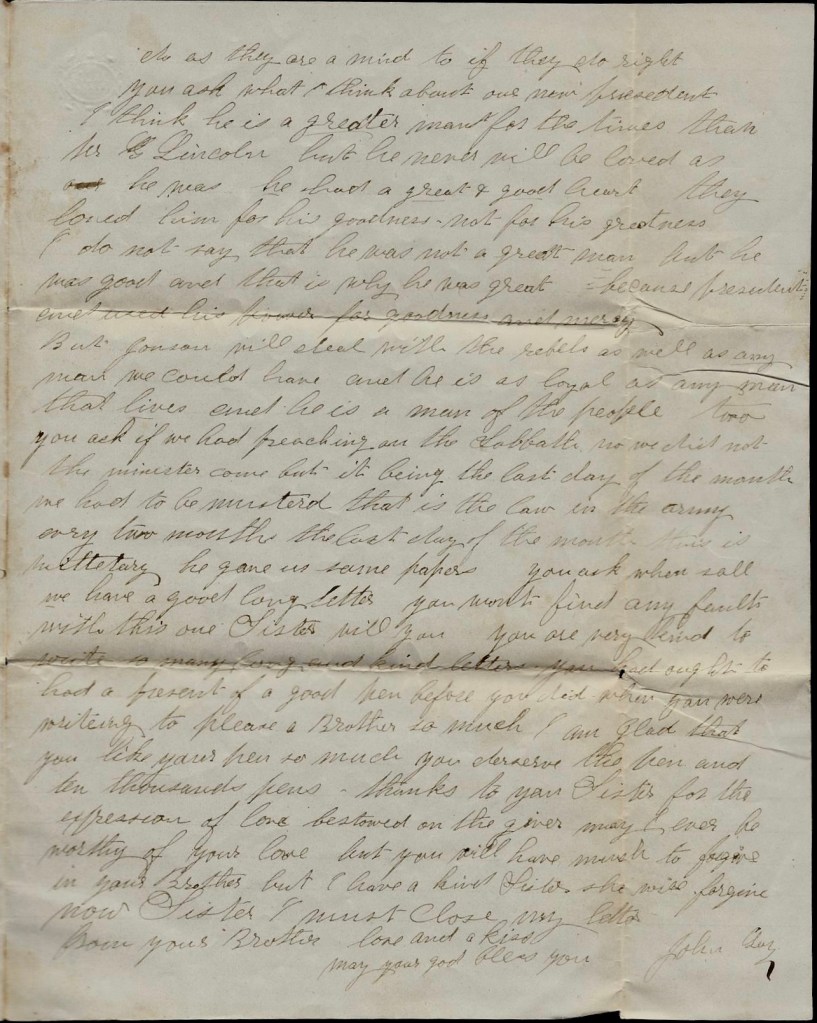 do as they are a mind to if they do right
you ask what I think about our new presedent
I think he is a greater man for the times than
Mr Lincoln but he never will be loved as
he was he had a great & good heart they
loved him for his goodness - not for his greatness
I do not say that he was not a great man but he
was good and that is why he was great = because presedent
and used his power for goodness and mercy
But Jonson will deal with the rebels as well as any
man we could have and he is as loyal as any man
that lives and he is a man of the people two
you ask if we had preaching on the Sabbath no we did not
the minister come but it being the last day of the month
we had to be musterd that is the law in the army
evry two months the last day of the month this is
milletary he gave us some papers you ask when sall
we have a good long letter you wont find any fault
with this one Sister will you you are very kind to
write so many long and kind letters you had ought to
had a present of a good pen before you did when you were
writeing to please a Brother so much I am glad that
you like your pen so much you deserve the pen and
ten thousands pens - thanks to you Sister for the
expression of love bestowed on the giver may I ever be
worthy of your love but you will have much to forgive
in your Brother but I have a kind Sister she will forgive
now Sister I must close my letter
from your Brother love and a kiss
may your god bless you John